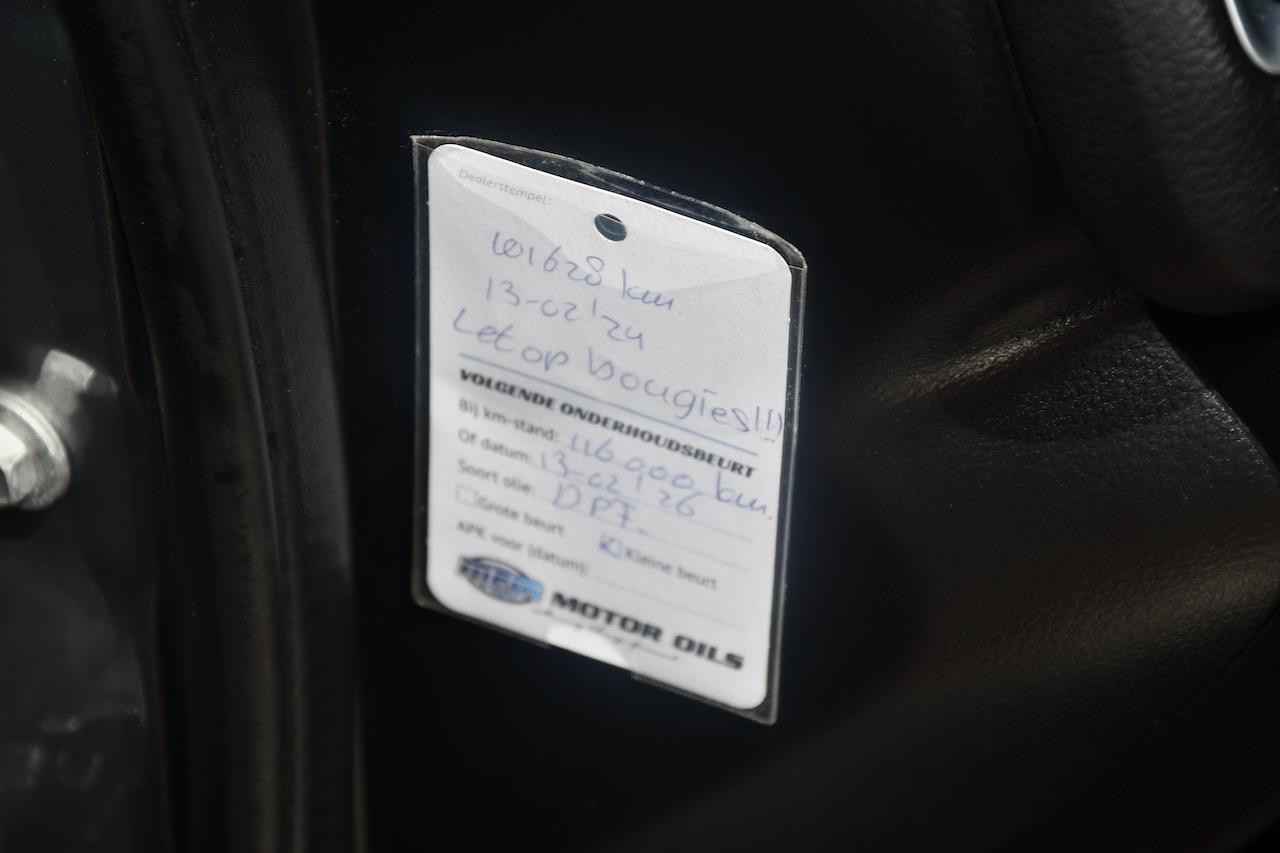 Dealerstempel:
101628 km
13-02'24
Let op bougies!!!
VOLGENDE ONDERHOUDSBEURT
Bij km-stand: 116 000 km.
Of datum: 13-02'26
Soort olie: DPF.
Grote beurt Kleine beurt
APK voor (datum):
MOTOR OILS